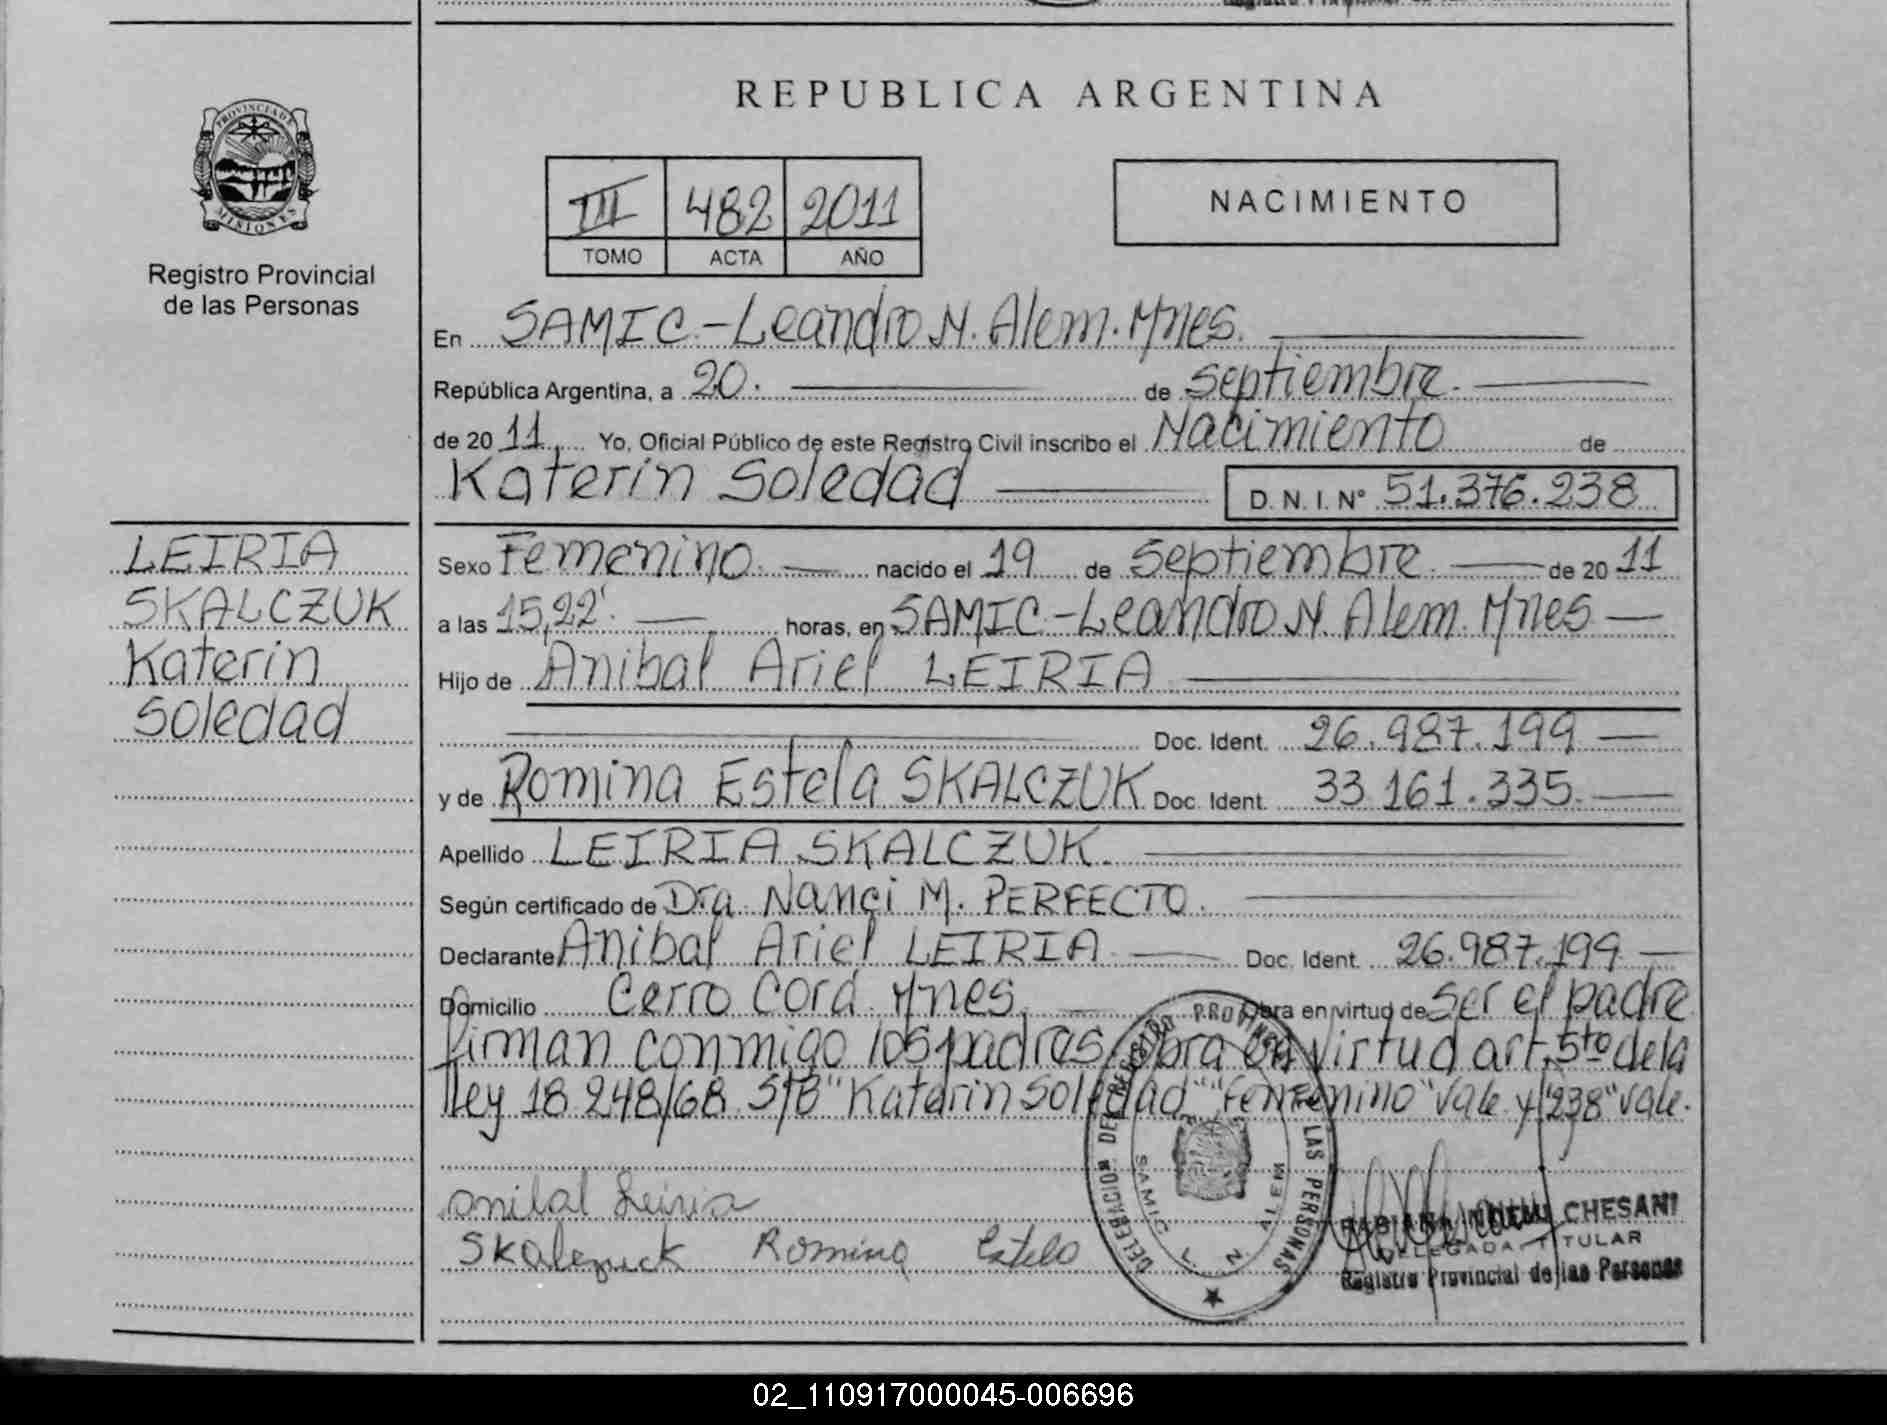 PROVINCIA DE
MISIONES
Registro Provincial
de las Personas
REPUBLICA ARGENTINA
III 482 2011
TOMO ACTA AÑO
NACIMIENTO
En SAMIC-Leandro N. Alem. Mnes.
República Argentina, a 20. de septiembre.
de 2011. Yo, Oficial Público de este Registro Civil inscribo el Nacimiento de
Katerin Soledad D.N.I. Nº 51.376.238
LEIRIA
SKALCZUK
Katerin
Soledad
Sexo Femenino. nacido el 19 de Septiembre. de 2011
a las 15,22'. horas, en SAMIC-Leandro N. Alem. Mnes
Hijo de Anibal Ariel LEIRIA
Doc. Ident. 26.987.199
y de Romina Estela SKALCZUK Doc. Ident. 33 161.335.
Apellido LEIRIA SKALCZUK.
Según certificado de Dra. Nanci M. PERFECTO.
Declarante Anibal Ariel LEIRIA Doc. Ident. 26.987.199
Domicilio Cerro Corá. Mnes. Obra en virtud de ser el padre
firman conmigo los padres. Obra en virtud art. 5to de la
ley 18.248/68. S/B "Katerin Soledad" "Femenino" vale y "238" vale.
Anibal Leiria
Skalczuck Romina Estela
DELEGACION DEL REGISTRO PROVINCIAL DE LAS PERSONAS
SAMIC L. N. ALEM
CHESANI
DELEGADA TITULAR
Registro Provincial de las Personas
02_110917000045-006696